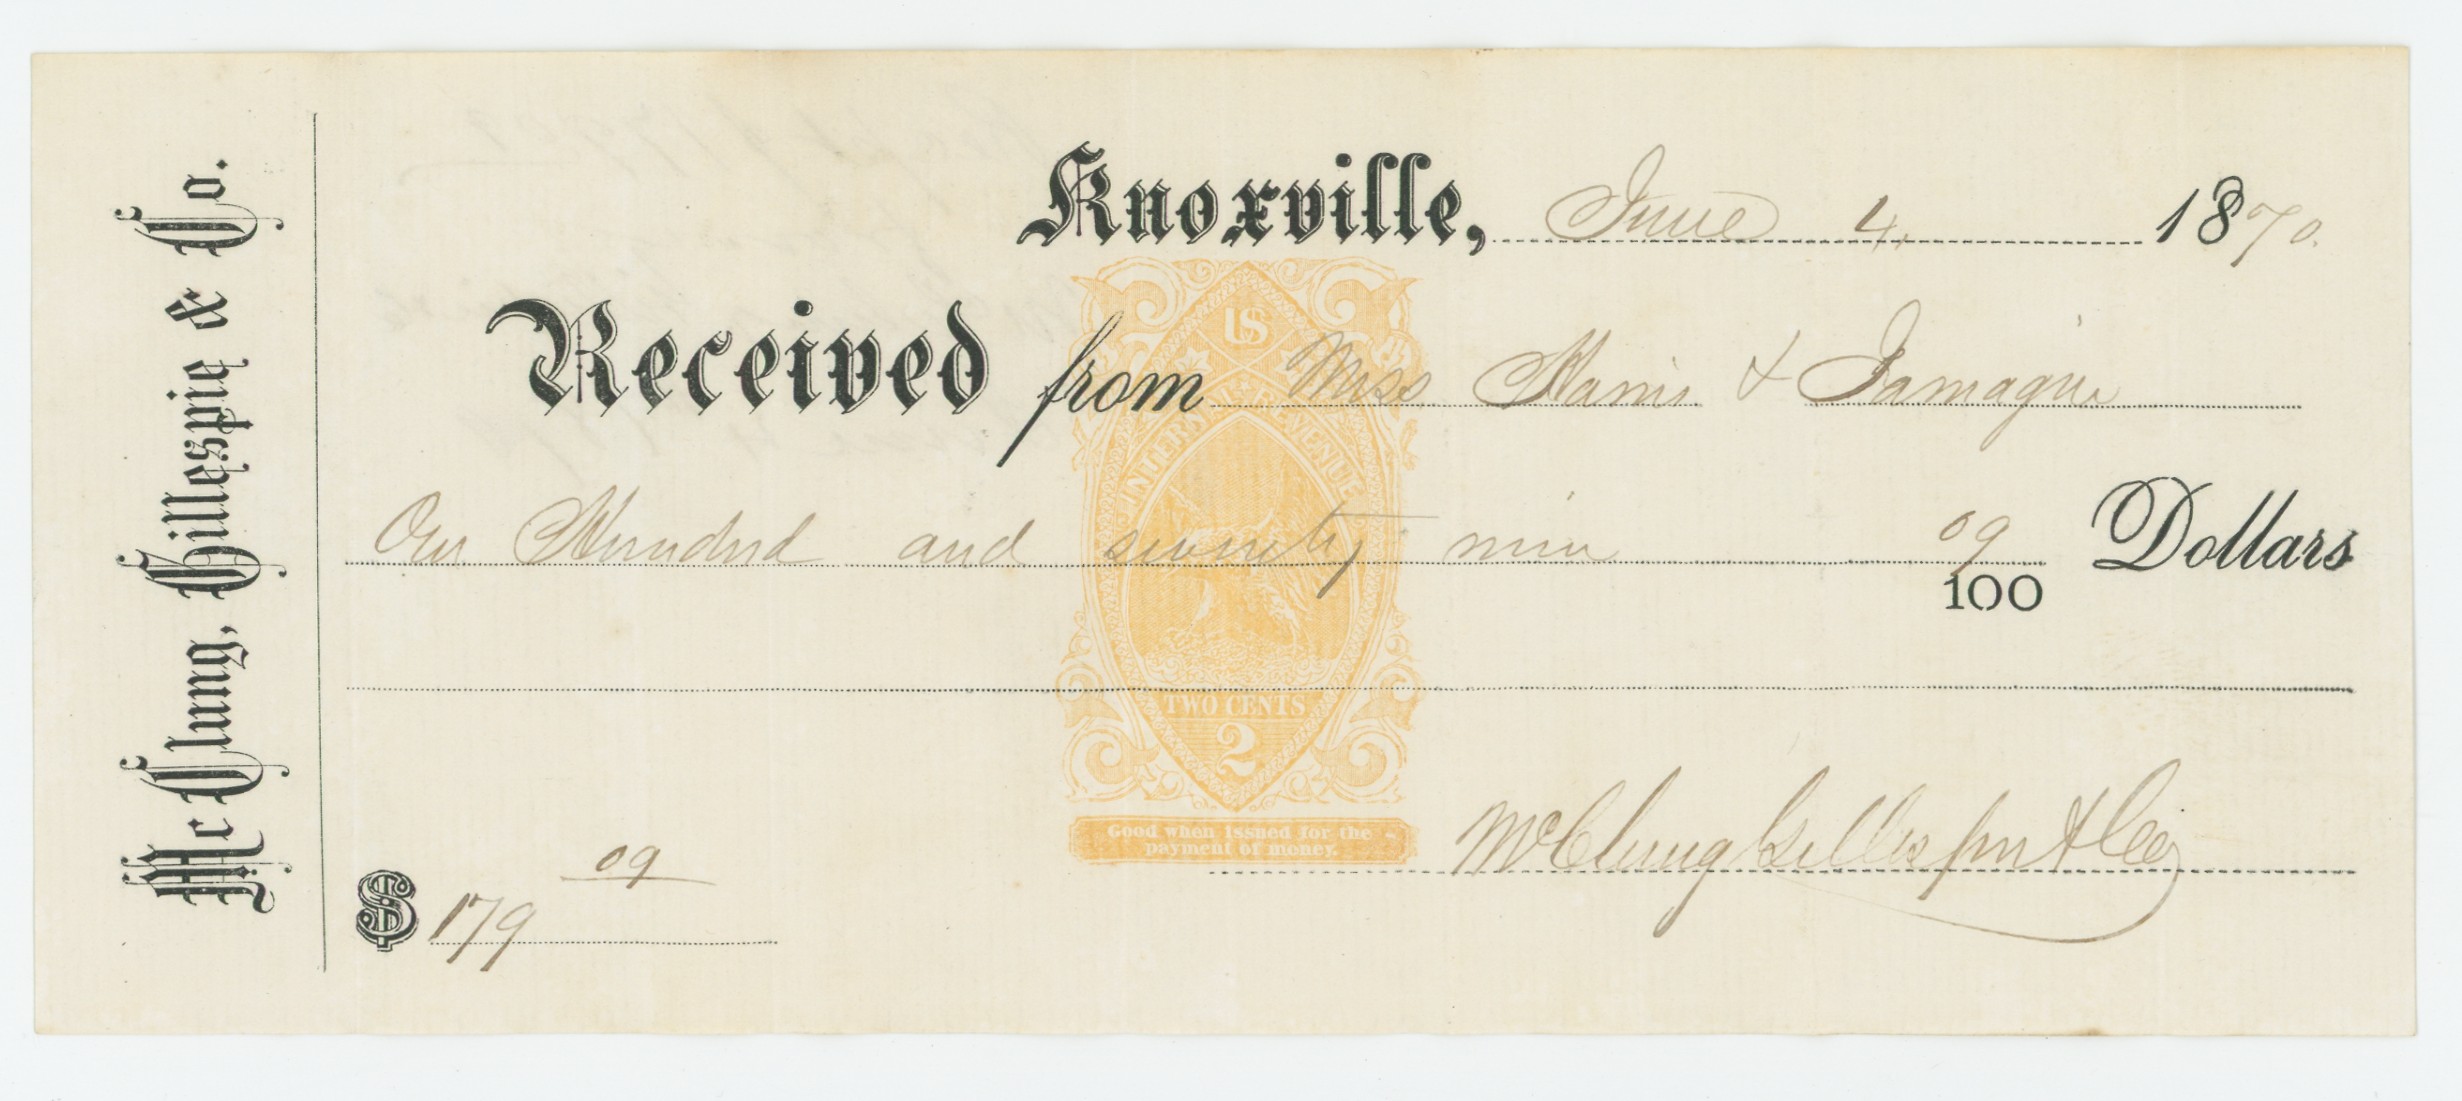 Mc Clung, Gillespie & Co.
Knoxville, June 4. 1870.
Received from Miss Harris & Jamagin
One Hundred and seventy nine 09/100 Dollars
$ 179 09
McClung Gillespie & Co
US
INTERNAL REVENUE
TWO CENTS
2
Good when issued for the
payment of money.